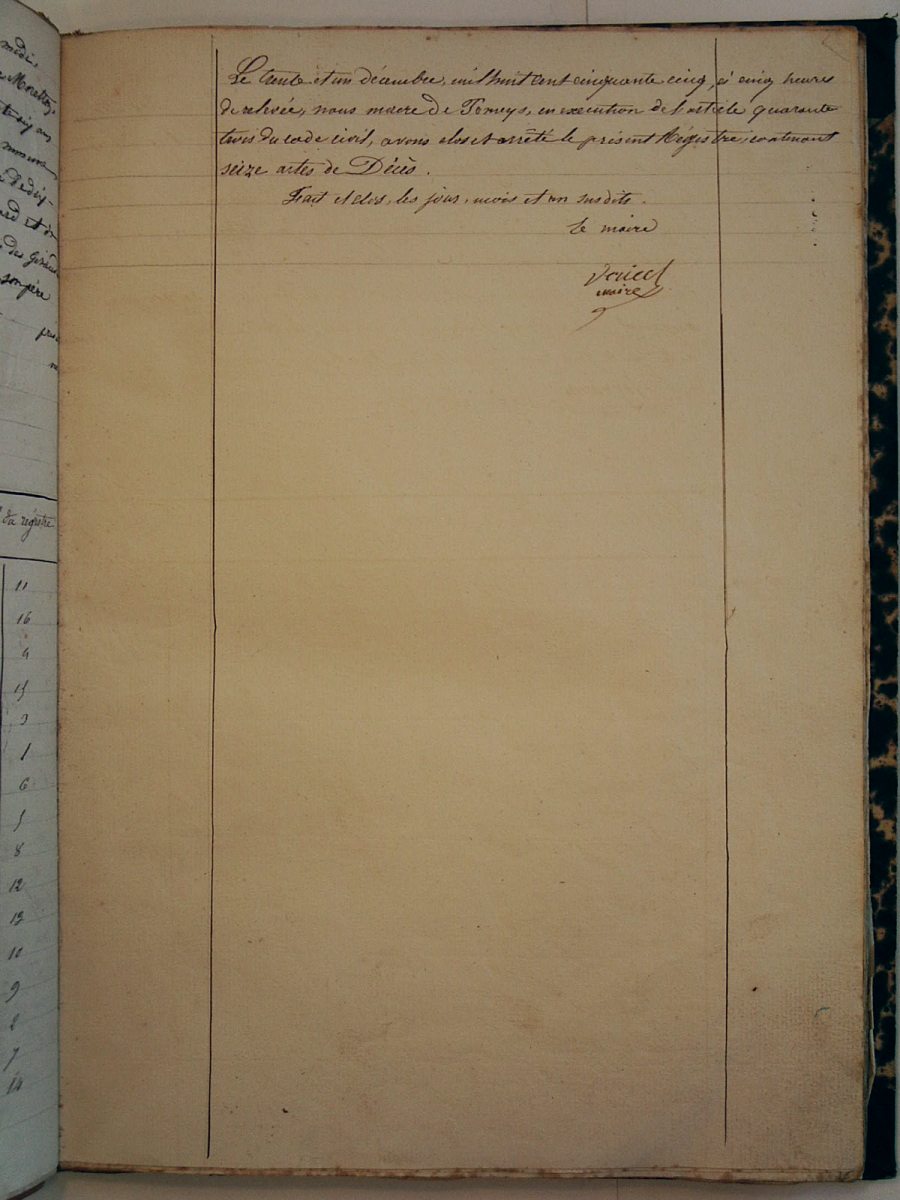 midi,
Moretton,
six ans,
son père
du registre
11
16
4
15
3
1
6
5
8
12
13
10
9
2
7
14
Le trente et un décembre, mil huit cent cinquante cinq, à cinq heures
de relevée, nous maire de Pomeys, en exécution de l'article quarante
trois du code civil, avons clos et arrêté le présent Régistre, contenant
seize actes de Décès.
Fait et clos, les jour, mois et an susdits.
Le maire
maire